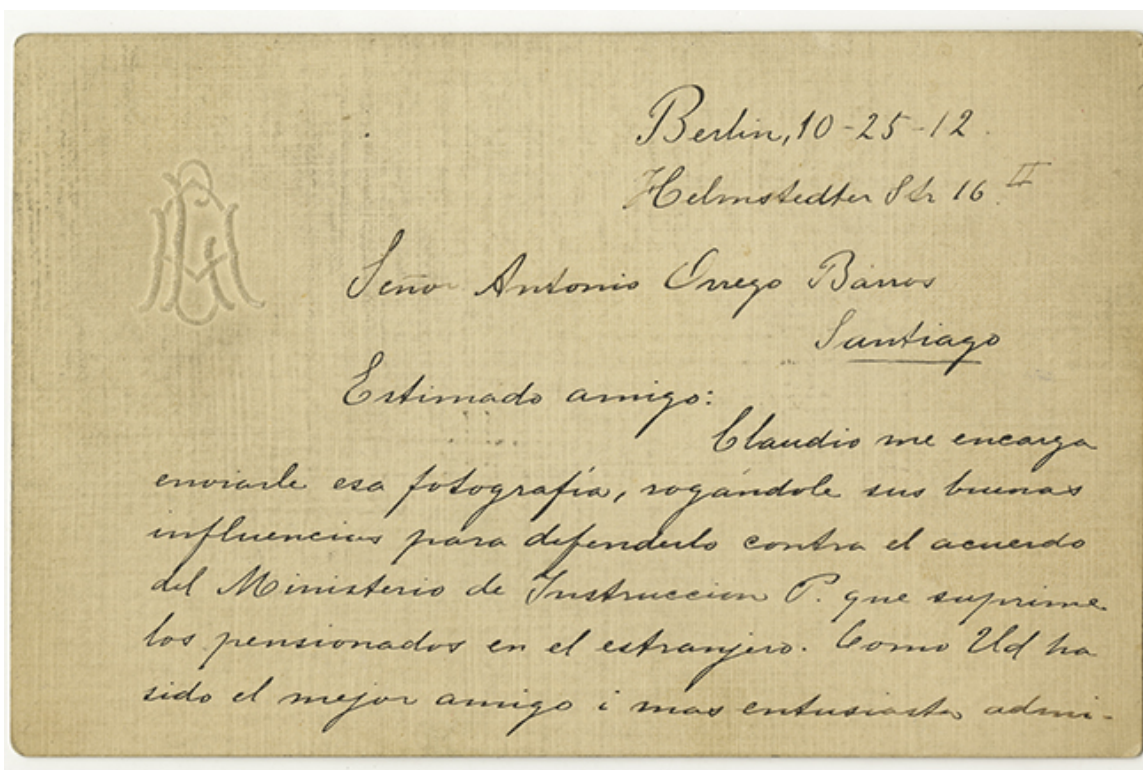 Berlin, 10-25-12.
Helmstedter Str 16 II
Señor Antonio Orrego Barros
Santiago
Estimado amigo:
Claudio me encarga
enviarle esa fotografía, rogándole sus buenas
influencias para defenderlo contra el acuerdo
del Ministerio de Instruccion P. que suprime
los pensionados en el estranjero. Como Ud ha
sido el mejor amigo i mas entusiasta admi-